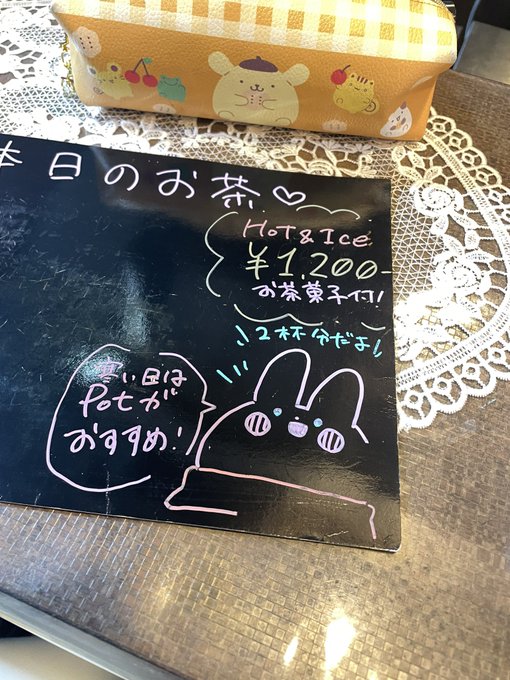 本日のお茶♡
HoT & Ice
¥1,200-
お茶菓子付!
\2杯分だよ/
寒い日は
Potが
おすすめ!